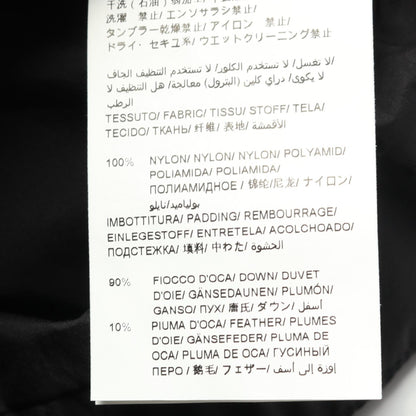 干洗（石油）弱加
洗濯 禁止/ エンソサラシ 禁止/
タンブラー乾燥禁止/ アイロン 禁止/
ドライ・セキユ系/ ウエットクリーニング禁止
/لا تغسل/ لا تستخدم الكلور/ لا تستخدم التنظيف الجاف
لا يكوى/ دراي كلين (البترول) معالجة/ هل التنظيف لا
الرطب
TESSUTO/ FABRIC/ TISSU/ STOFF/ TELA/
TECIDO/ ТКАНЬ/ 纤维/ 表地/ الأقمشة/
100% NYLON/ NYLON/ NYLON/ POLYAMID/
POLIAMIDA/ POLIAMIDA/
ПОЛИАМИДНОЕ / 锦纶/尼龙/ ナイロン/
بولياميد/نايلو
IMBOTTITURA/ PADDING/ REMBOURRAGE/
EINLEGESTOFF/ ENTRETELA/ ACOLCHOADO/
ПОДСТЕЖКА/ 填料/ 中わた/ الحشوة/
90% FIOCCO D'OCA/ DOWN/ DUVET
D'OIE/ GÄNSEDAUNEN/ PLUMÓN/
GANSO/ ПУХ/ 唐氏/ ダウン/ أسفل/
10% PIUMA D'OCA/ FEATHER/ PLUMES
D'OIE/ GÄNSEFEDER/ PLUMA DE
OCA/ PLUMA DE OCA/ ГУСИНЫЙ
ПЕРО / 鹅毛/ フェザー/ إوزة إلى أسف/